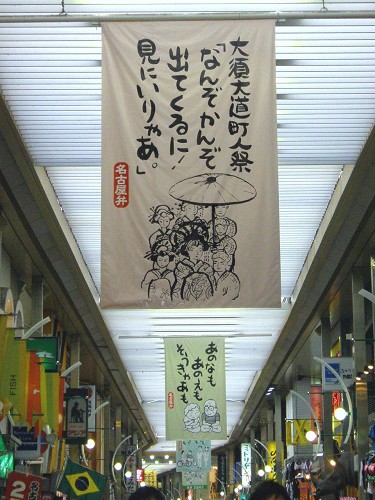 大須大道町人祭
「なんぞかんぞ
出てくるに!
見にいりゃあ。」
名古屋弁
あのなも
あのえも
そうきゃあも
名古屋弁
FISH
2